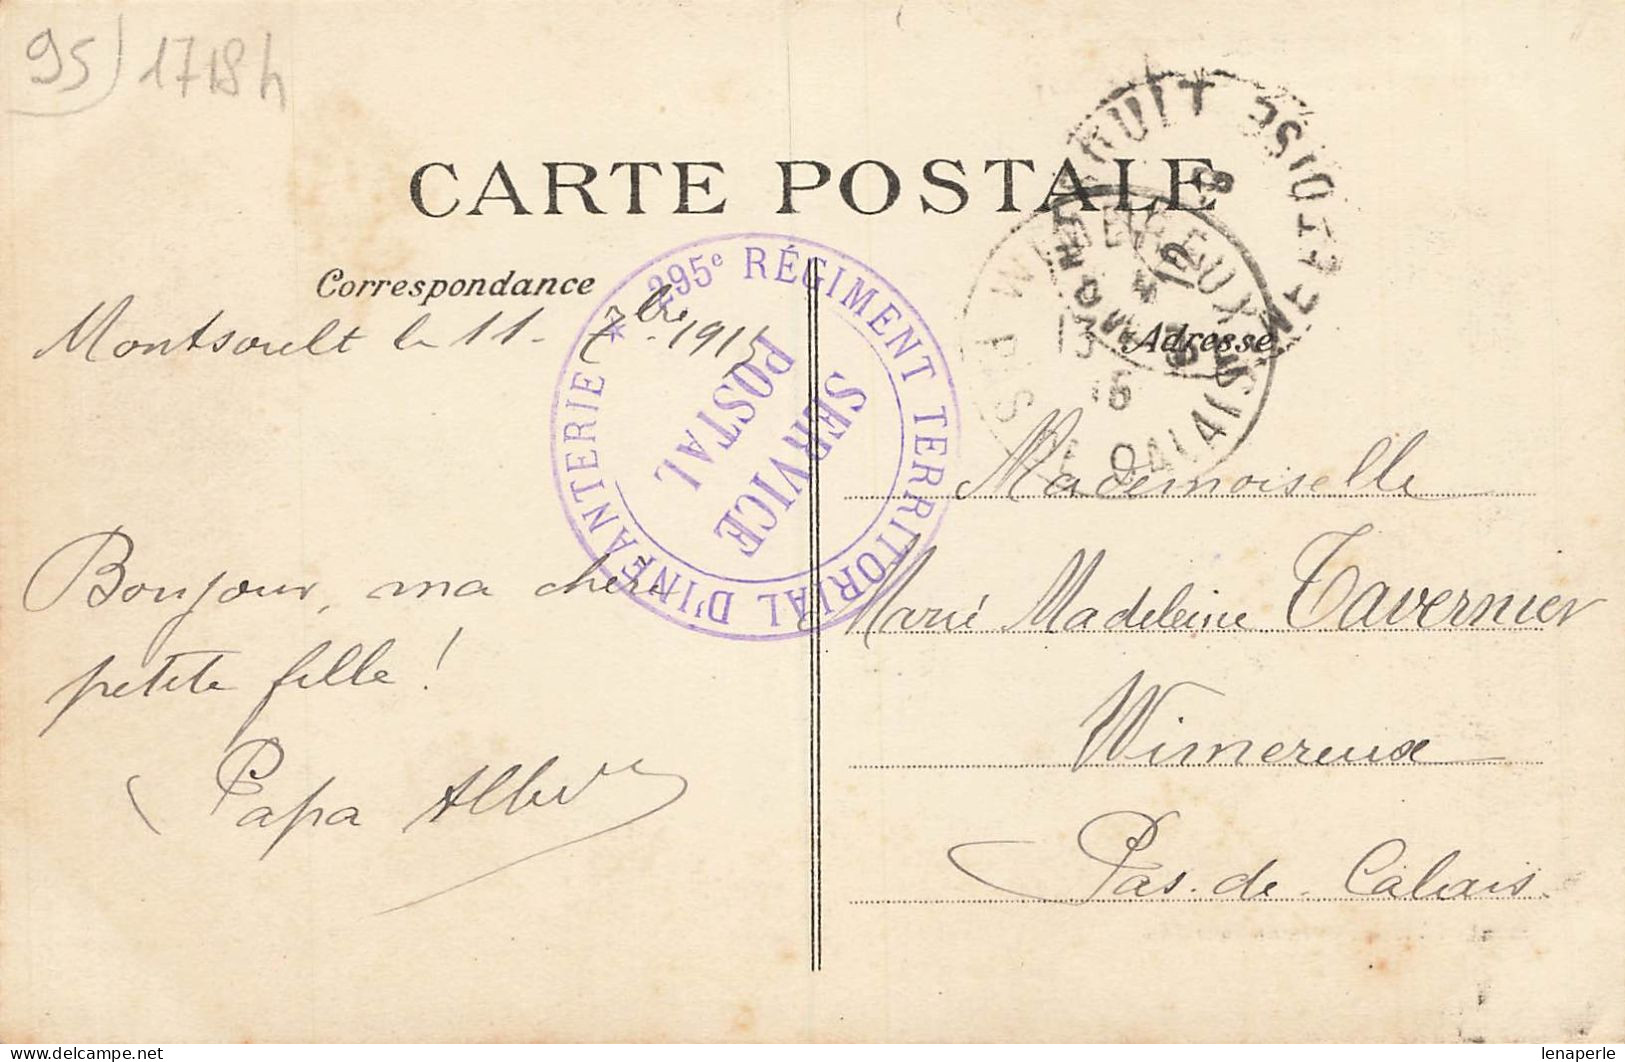 95) 1718h
CARTE POSTALE
Correspondance
Montsoult le 11 - 7bre 1915
295e RÉGIMENT TERRITORIAL D'INFANTERIE *
SERVICE
POSTAL
Bonjour, ma chere
petite fille!
Papa Albert
MONTSOULT
SEINE-ET-OISE
WIMEREUX
PAS DE CALAIS
13
15
Adresse
Mademoiselle
Marie Madeleine Tavernier
Wimereux
Pas-de-Calais.
lenaperle